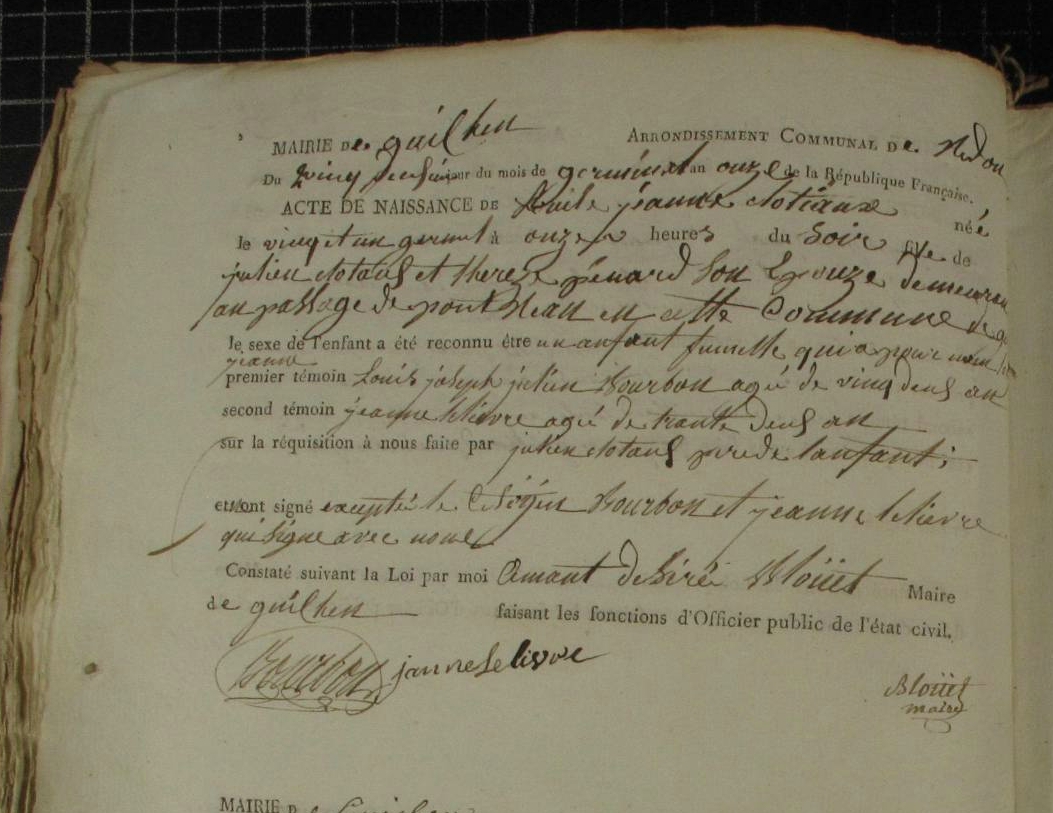 MAIRIE De guilhen ARRONDISSEMENT COMMUNAL De Redon
Du Vinq deusieme jour du mois de germinal an onze de la République Française.
ACTE DE NAISSANCE DE jeanne née
le vinq et un germinal à onze heures du Soir fille de
julien et therese penard Son Epouze demeuran
au passage de pont Rean en cette Commune de
le sexe de l'enfant a été reconnu être un anfant fumelle qui a pour nom
jeanne
premier témoin Louis joseph julien Bourbon agé de vinq deus an
second témoin jeanne lelievre agé de trante deus an
sur la réquisition à nous faite par julien pere de lanfant;
et ont signé excepté le Citoÿen Bourbon et jeanne lelievre
qui Signe avec nous
Constaté suivant la Loi par moi Amant desiré Bloüet Maire
de guilhen faisant les fonctions d'Officier public de l'état civil.
Bourbon janne Lelivre
Bloüet
maire
MAIRIE De Guilhen